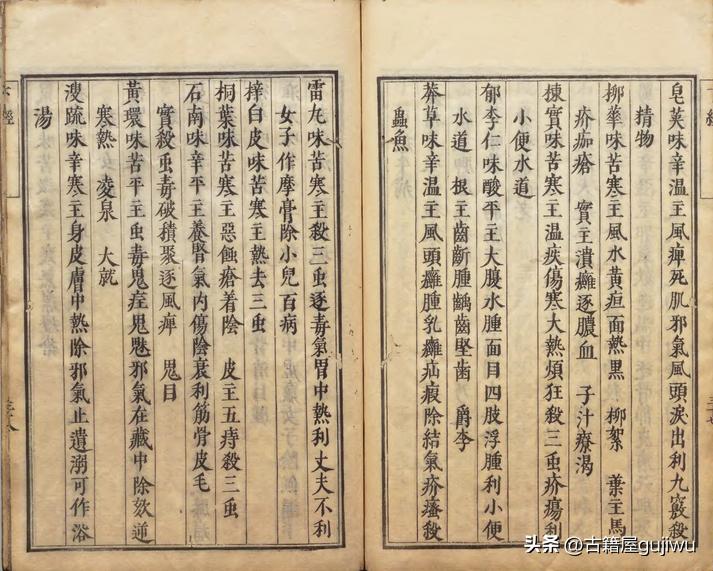 皂莢味辛温主風痺死肌邪氣風頭淚出利九竅殺
精物
柳華味苦寒主風水黃疸面熱黑　柳絮　葉主馬
疥痂瘡　實主潰癰逐膿血　子汁療渴
楝實味苦寒主温疾傷寒大熱煩狂殺三虫疥瘍利
小便水道
郁李仁味酸平主大腹水腫面目四肢浮腫利小便
水道　根主齒齗腫齲齒堅齒　爵李
莽草味辛温主風頭癰腫乳癰疝瘕除結氣疥瘙殺
蟲魚
雷丸味苦寒主殺三虫逐毒氣胃中熱利丈夫不利
女子作摩膏除小兒百病
梓白皮味苦寒主熱去三虫
桐葉味苦寒主惡蝕瘡着陰　皮主五痔殺三虫
石南味辛平主養腎氣内傷陰衰利筋骨皮毛
實殺虫毒破積聚逐風痺　鬼目
黃環味苦平主虫毒鬼疰鬼魅邪氣在藏中除欬逆
寒熱　凌泉　大就
溲疏味辛寒主身皮膚中熱除邪氣止遺溺可作浴
湯
头条 @古籍屋gujiwu